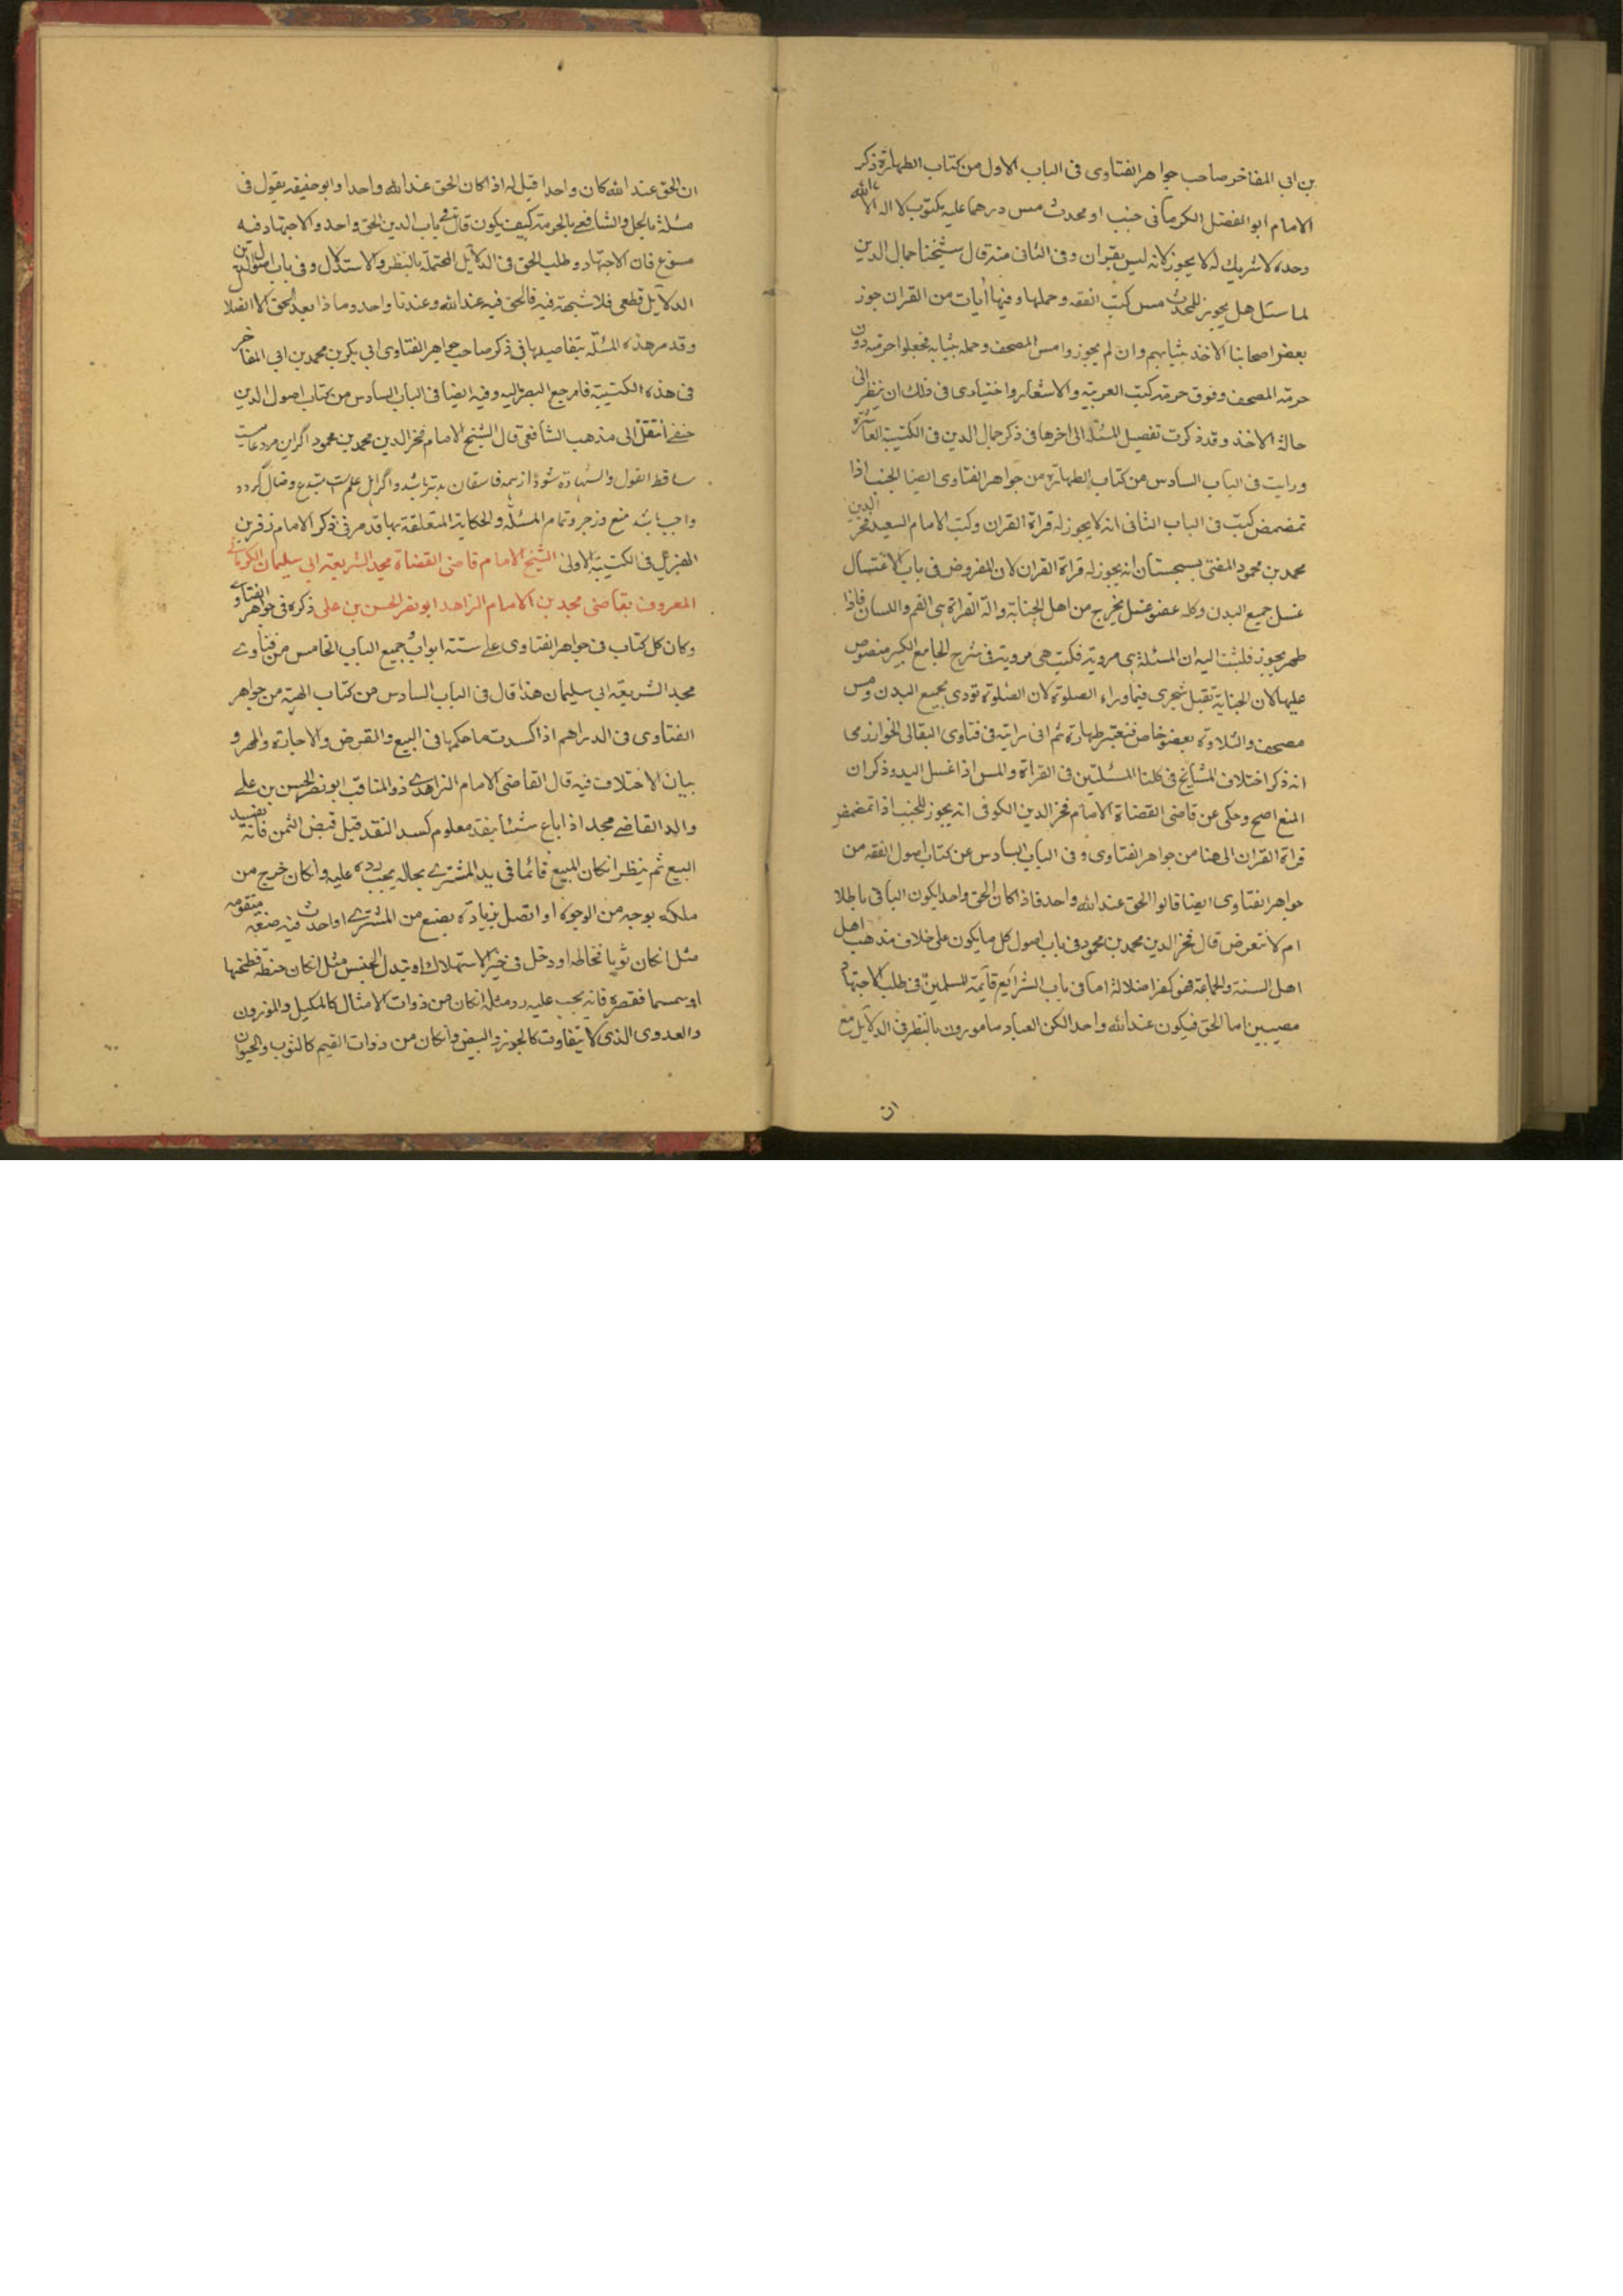 بن ابى المفاخر صاحب جواهر الفتاوى فى الباب الاول من كتاب الطهارة ذكر
الامام ابو الفضل الكرمانى جنب او محدث مس درهما عليه مكتوب لا اله الا الله
وحده لا شريك له لا يجوز لانه ليس بقران وفى الثانى منه قال شيخنا جمال الدين
لما سئل هل يجوز للمحدث مس كتب الفقه وحملها وفيها أيات من القران جوز
بعض اصحابنا الاخذ بثيابهم وان لم يجوزوا مس المصحف وحمله بثيابه فجعلوا حرمته دون
حرمة المصحف وفوق حرمة كتب العربية والاشعار واختيارى فى ذلك ان ينظر الى
حالة الاخذ وقد ذكرت تفصيل المسئلة الى اخرها فى ذكر جمال الدين فى الكتيبة العاشرة
ورايت فى الباب السادس من كتاب الطهارة من جواهر الفتاوى ايضا الجنب اذا
تمضمض كتبت فى الباب الثانى انه لا يجوز له قراة القران وكتب الامام السعيد فخر الدين
محمد بن محمود المفتى بسجستان انه يجوز له قراة القران لان المفروض فى باب الاغتسال
غسل جميع البدن وكل عضو غسل يخرج من اهل الجنابة والة القراة هى الفم واللسان فاذا
طهر يجوز فكتبت اليه ان المسئلة هى مروية فكتب هى مروية فى شرح الجامع الكبير منصوص
عليها لان الجنابة تقبل التجزى فيما وراء الصلوة لان الصلوة تودى بجميع البدن ومس
مصحف والتلاوة بعضو خاص فتعتبر طهارة ثم انى رايته فى فتاوى البقالى الخوارزمى
انه ذكر اختلاف المشائخ فى كلتا المسئلتين فى القراة والمس اذا غسل اليد وذكر ان
المنع اصح وحكى عن قاضى القضاة الامام فخر الدين الكوفى انه يجوز للجنب اذا تمضمض
قراة القران الى هنا من جواهر الفتاوى وفى الباب السادس عن كتاب اصول الفقه من
جواهر الفتاوى ايضا قالوا الحق عند الله واحد فاذا كان الحق واحدا يكون الباقى باطلا
ام لا نتعرض قال فخر الدين محمد بن محمود فى باب اصول كل ما يكون على خلاف مذهب اهل
اهل السنة والجماعة فهو كفر او ضلالة اما فى باب الشرايع فأيمة المسلمين فى طلب الاجتهاد
مصيبين اما الحق فيكون عند الله واحد الكن العباد مامورون بالنظر فى الدلايل مع
ان
ان الحق عند الله كان واحدا قيل له اذا كان الحق عند الله واحدا وابو حنيفة يقول فى
مسئلة بالحل والشافعى بالحرمة كيف يكون قال فى باب الدين الحق واحد والاجتهاد فيه
مسوغ فان الاجتهاد وطلب الحق فى الدلايل المحتملة بالنظر والاستدلال وفى باب اصول الدين
الدلايل قطعى فلا شبهة فيه فالحق فيه عند الله وعندنا واحد وما ذا بعد الحق الا الضلا
وقد مر هذه المسئلة بتفاصيلها فى ذكر صاحب جواهر الفتاوى ابى بكر بن محمد بن ابى المفاخر
فى هذه الكتيبة فارجع البصر اليه وفيه ايضا فى الباب السادس من كتاب اصول الدين
حنفى انتقل الى مذهب الشافعى قال الشيخ الامام فخر الدين محمد بن محمود اگر اين مرد عاميست
ساقط القول والشهادة شود از همه فاسقان بدتر باشد و اگر اهل علم است مبتدع وضال گردد
واجب باشد منع و زجر وتمام المسئلة والحكاية المتعلقة بها قد مر فى ذكر الامام زفر بن
الهزيل فى الكتيبة الاولى الشيخ الامام قاضى القضاة مجد الشريعة ابى سليمان الكرمانى
المعروف بقاضى مجد بن الامام الزاهد ابو نصر الحسن بن على ذكره فى جواهر الفتاوى
وكان كل كتاب فى جواهر الفتاوى على ستة ابواب جميع الباب الخامس من فتاوى
مجد الشريعة ابى سليمان هذا قال فى الباب السادس من كتاب الهبة من جواهر
الفتاوى فى الدراهم اذا كسدت ما حكمها فى البيع والقرض والاجارة والمهر و
بيان الاختلاف فيه قال القاضى الامام الزاهدى ذو المناقب ابو نصر الحسن بن على
والد القاضى مجد اذا باع شيئا بنقد معلوم كسد النقد قبل قبض الثمن فانه يفسد
البيع ثم ينظر ان كان المبيع قائما فى يد المشترى بحاله يجب رده عليه وان كان خرج من
ملكه بوجه من الوجوه او اتصل بزيادة بصنع من المشترى او احدث فيه صنعة متقومة
مثل ان كان ثوبا فخاطه او دخل فى خيز الاستهلاك او تبدل الجنس مثل ان كان حنطة فطحنها
او سمسما فعصره فانه يجب عليه رد مثله ان كان من ذوات الامثال كالمكيل والموزون
والعددى الذى لا يتفاوت كالجوز والبيض وان كان من ذوات القيم كالثوب والحيوان